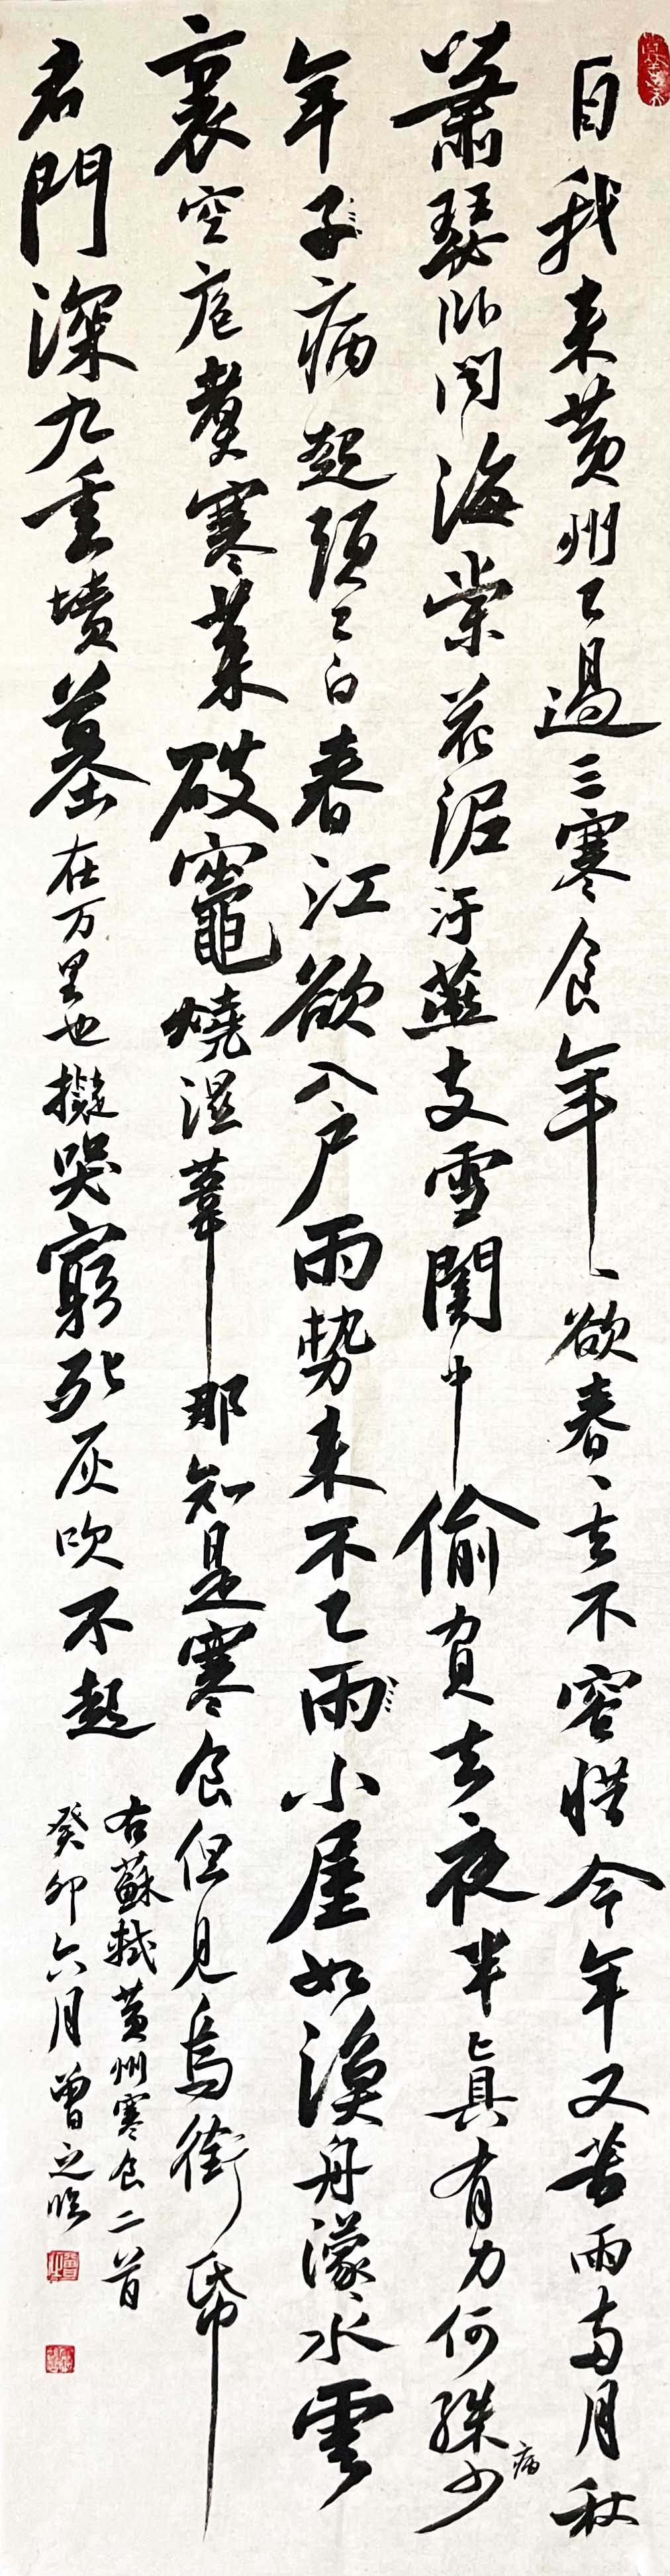 自我来黄州已過三寒食年〻欲春〻去不容惜今年又苦雨兩月秋
蕭瑟卧聞海棠花泥汙燕支雪闇中偷負去夜半真有力何殊少
病
年子病起頭已白春江欲入户雨勢来不已雨小屋如漁舟濛〻水雲
裏空庖煑寒菜破竈燒濕葦那知是寒食但見烏銜帋
君門深九重墳墓在万里也擬哭塗窮死灰吹不起
右蘇軾黄州寒食二首
癸卯六月曾之臨